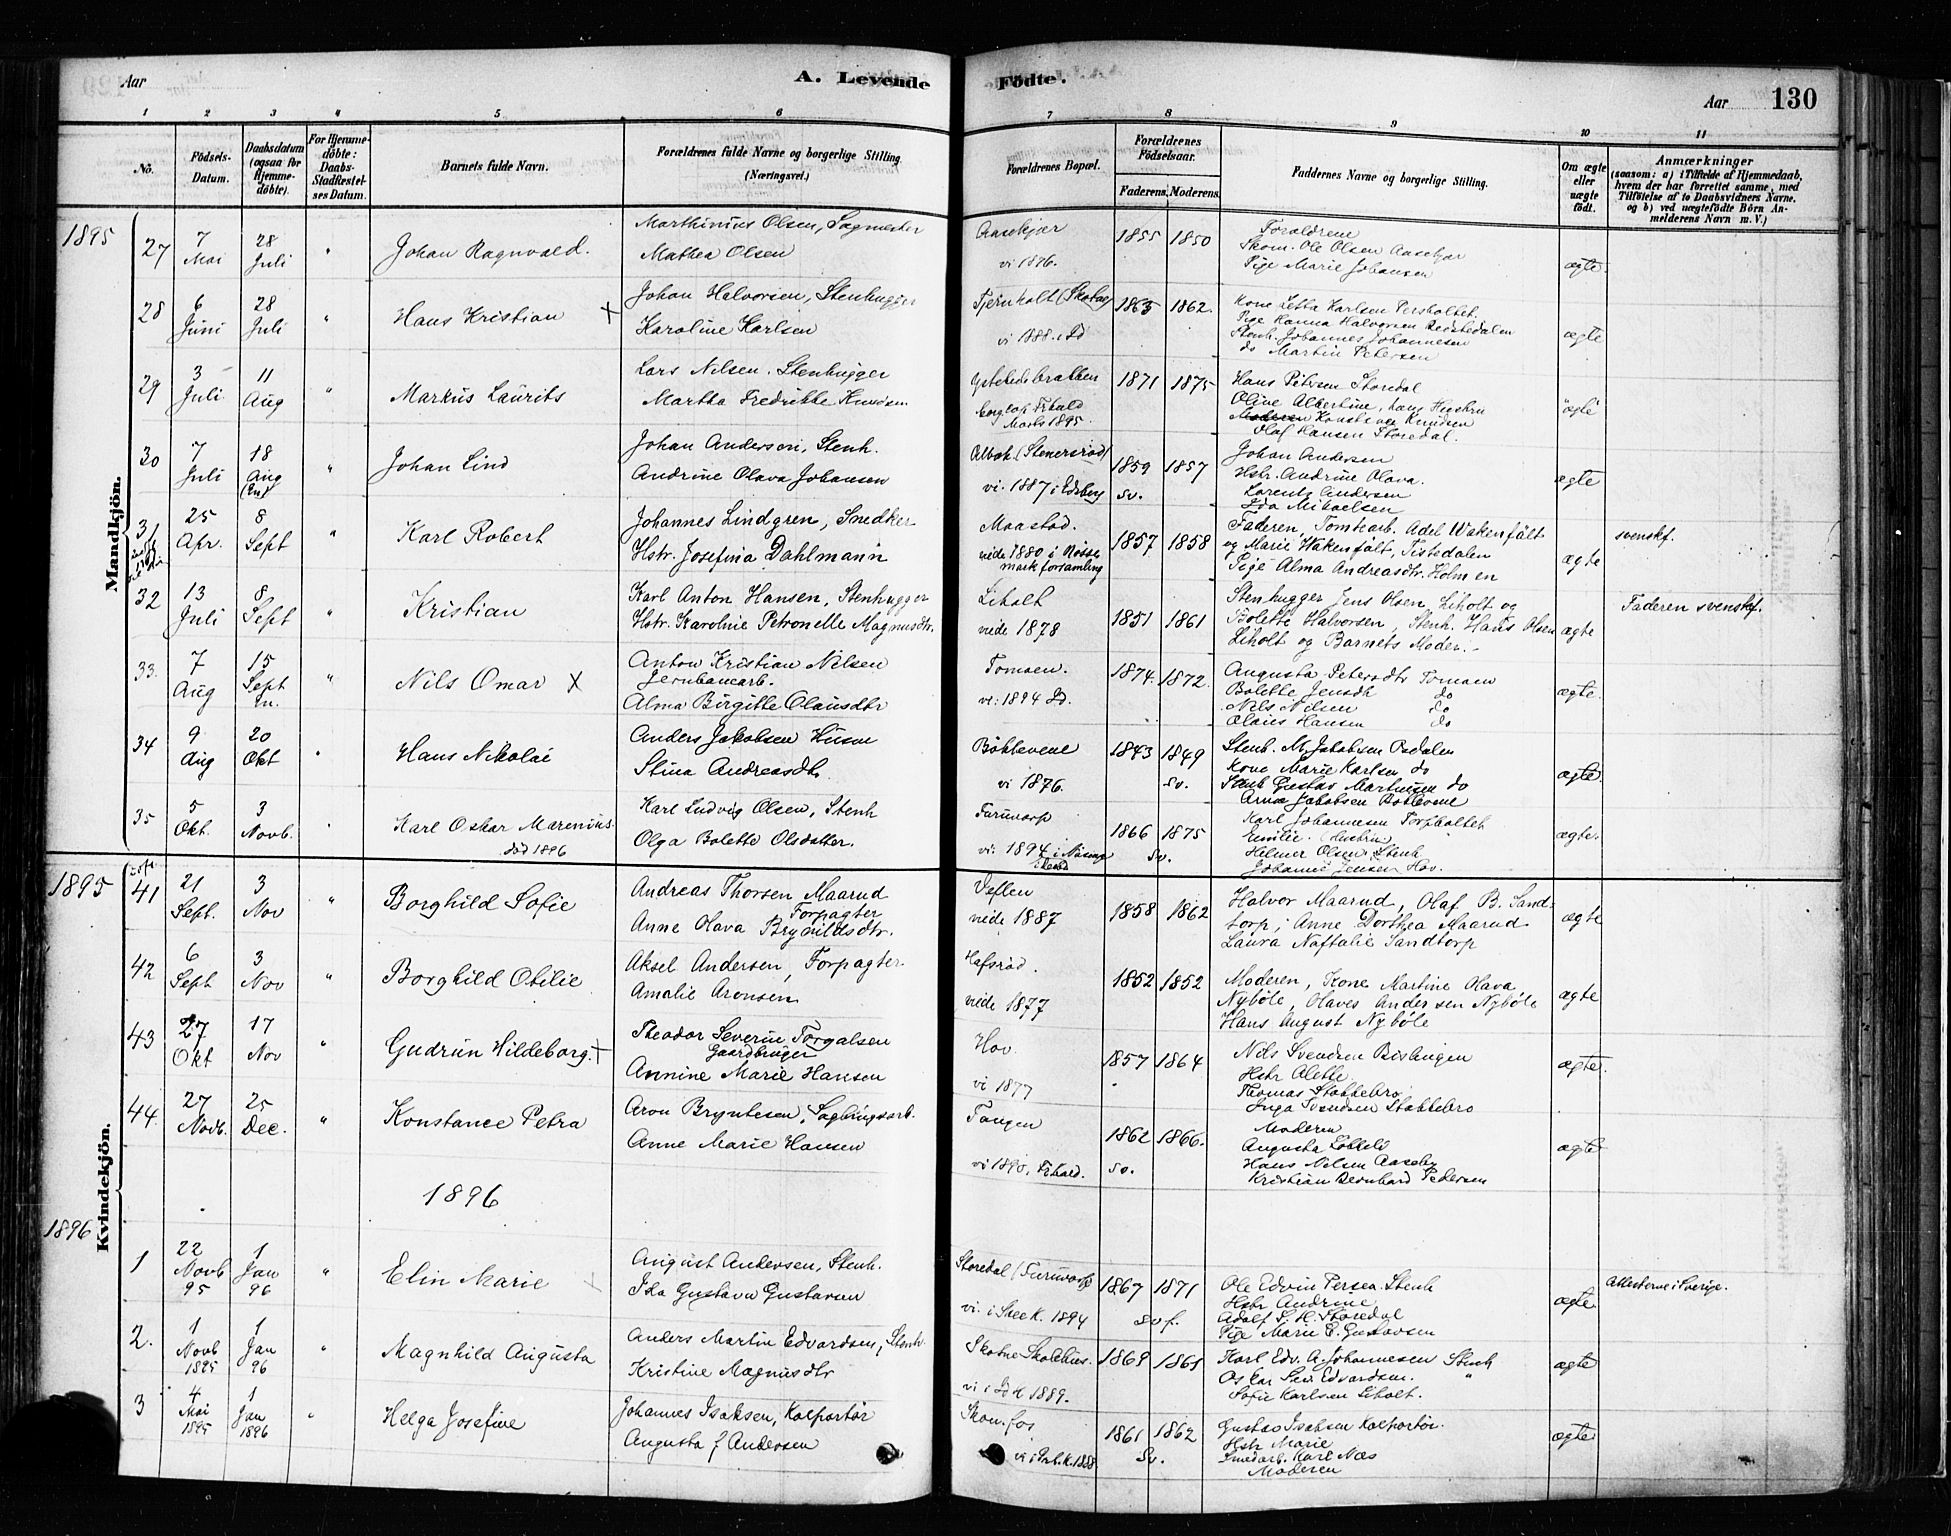 Aar
A. Levende
Födte.
Aar 130
1 2 3 4 5 6 7 8 9 10 11
No.
Födsels-Datum.
Daabsdatum (ogsaa for Hjemmedöbte).
For Hjemmedöbte: Daabs-Stadfæstelses Datum.
Barnets fulde Navn.
Forældrenes fulde Navne og borgerlige Stilling. (Næringsvei.)
Forældrenes Bopæl.
Forældrenes Födselsaar.
Faderens.
Moderens.
Faddernes Navne og borgerlige Stilling.
Om ægte eller uægte födt.
Anmærkninger
(saasom: a) i Tilfælde af Hjemmedaab,
hvem der har forrettet samme, med
Tilföielse af to Daabsvidners Navne,
og b) ved uægtefödte Börn Anmelderens Navn m. V.)
Mandkjön.
1895
27 7 Mai 28 Juli " Johan Ragnvald.
Marthinius Olsen, Sagmester
Mathea Olsen
Aasekjær
vi 1896.
1855 1850
Forældrene
Skom. Ole Olsen Aasekjær
Pige Marie Johansen
ægte
28 6 Juni 28 Juli " Hans Kristian X
Johan Halvorsen, Stenhugger
Karoline Karlsen
Tjernholt (Skotne)
vi 1888 i Id
1863 1862.
Kone Letta Karlsen
Pige Hanna Halvorsen
Stenh. Johannes Johannesen
do Martin Petersen
ægte
29 3 Juli 11 Aug " Markus Laurits
Lars Nilsen. Stenhugger
Martha Fredrikke Knudsen
Marts 1895.
1871 1875
Hans Petersen Storedal
Olive Albertine, hans Hustru
Knudsen
Olaf Hansen Storedal.
"ægte"
30 7 Juli 18 Aug " Johan Lind
Johan Andersen, Stenh.
Andrine Olava Johansen
(Stenersröd)
vi. 1887 i Edsberg
1859 1857
sv.
Johan Andersen
Hstr. Andrine Olava.
Lorentz Andersen
Ida Mikaelsen
ægte
31 25 Apr. 8 Sept " Karl Robert
Johannes Lindgren, Snedker
Hstr. Josefina Dahlmann
Maastad.
viede 1880 i Nössemark forsamling
1857 1858
Faderen, Tomtearb. Adel Wakenfält
og Marie Wakenfält, Tistedalen
Pige Alma Andreasdtr. Holmen
ægte
svenskf.
32 13 Juli 8 Sept " Kristian
Karl Anton Hansen, Stenhugger
Hstr. Karoline Petronelle Magnusdtr.
Liholt
viede 1878
1851 1861
Stenhugger Jens Olsen, Liholt og
Bolette Halvorsen, Stenh. Hans Olsen
Liholt og Barnets Moder.
ægte
Faderen svenskf.
33. 7 Aug 15 Sept " Nils Omar X
Anton Kristian Nilsen
Jernbanearb.
Alma Birgitte Olausdtr
Tomoen.
vi: 1894 Id.
1874. 1872.
Augusta Petersdtr Tomoen
Bolette Jensdtr do
Nils Nilsen do
Olaus Hansen do
ægte.
34 9 Aug 20 Okt " Hans Nikolai
Anders Jakobsen Husm
Stina Andreasdtr.
Böklevene
vi 1876.
1843 1849
sv.
Stenh. M. Jakobsen
Kone Marie Karlsen do
Stenh Gustav Martinsen do
Anna Jakobsen Böklevene
ægte
35 5 Okt. 3 Novb. Karl Oskar Marenius.
död 1896
Karl Ludvig Olsen, Stenh
Olga Bolette Olsdatter
Furutorp
vi: 1894
1866 1875
Sv.
Karl Johannesen Torpholtet
Emilie (Hustru)
Helmer Olsen Stenh
Johanne Jensen Hov.
ægte.
Kvindekjön.
1895
41 21 Sept. 3 Nov " Borghild Sofie
Andreas Thorsen Maarud
Forpagter
Anne Olava Brynildsdtr.
Veflen
viede 1887
1858 1862
Halvor Maarud, Olaf B. Sandtorp;
Anne Dorthea Maarud
Laura Naftalie Sandtorp
ægte
42 6 Sept 3 Nov " Borghild Otilie
Aksel Andersen, Forpagter
Amalie Aronsen
Hafsröd.
viede 1877
1852 1852
Moderen, Kone Martine Olava
Nyböle, Olaves Andersen Nyböle
Hans August Nyböle
ægte
43 27 Okt 17 Nov " Gudrun Hildeborg. +
Theodor Severin Torgalsen
Gaardbruger
Annine Marie Hansen
Hov.
vi 1877
1857 1864
Nils Svendsen Bislingen
Hstr Alette
Thomas Stokkebro
Inga Svendsen Stokkebro
ægte.
44. 27 Novb. 25 Dec. " Konstance Petra
Aron Bryntesen, Sagbrugsarb.
Anne Marie Hansen
Tangen
vi 1890,
1862 1866.
sv.
Moderen
Augusta
Hans Nilsen Aaseby
Kristian Bernhard Pedersen
ægte
1896
1896
1 22 Novb 95 1 Jan 96 " Elin Marie
August Andersen, Stenh.
Ida Gustava Gustavsen
Storedal (Furutorp
vi: i Skee k. 1894
1867 1871
sv f.
Ole Edvin Persen Stenh
Hstr Andrine
Adolf S. H. Storedal
Pige Marie E. Gustavsen
ægte
Attesterne i Sverige.
2. 1 Novb 1895 1 Jan 96 " Magnhild Augusta
Anders Martin Edvardsen, Stenh
Kristine Magnusdtr
Skotne Skolehus.
vi i Id k 1889.
1869 1861
Karl Edv. A. Johannesen Stenh
Oskar Sev. Edvardsen. "
Sofie Karlsen Liholt.
ægte
3 4 Mai 1895 1 Jan 1896 " Helga Josefine
Johannes Isaksen, Kolportör
Augusta f Andersen
1861 1862
Sv.
Gustav Isaksen Kolportör.
Hstr Marie
Smedarb. Karl Næs
Moderen
ægte